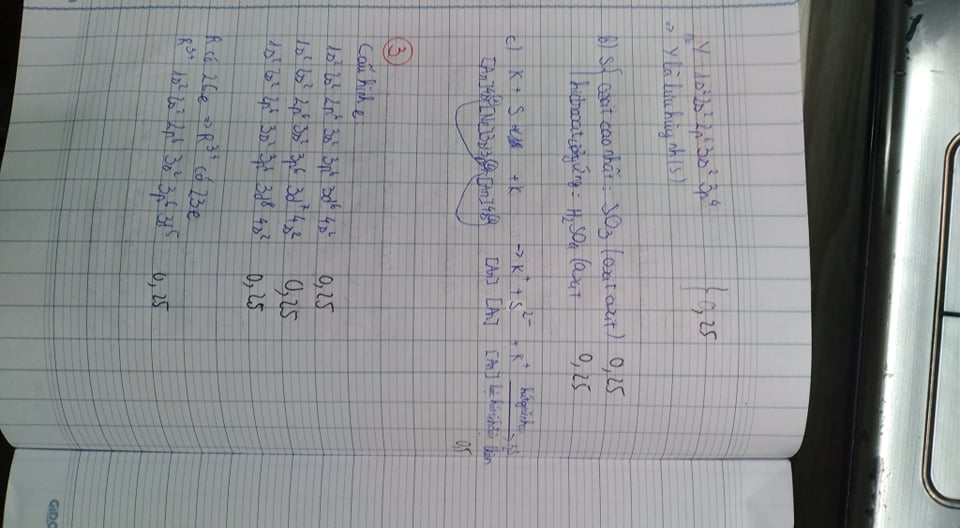 ₁₆Y: 1s² 2s² 2p⁶ 3s² 3p⁴ } 0,25
=> Y là lưu huỳnh (S)
b) S { oxit cao nhất: SO₃ (oxit axit) 0,25
hiđroxit tương ứng: H₂SO₄ (axit) 0,25
c) K + S + K → K⁺ + S²⁻ + K⁺
[Ar]4s¹ [Ne]3s²3p⁴ [Ar]4s¹ [Ar] [Ar] [Ar]
0,5
③
Cấu hình e:
1s² 2s² 2p⁶ 3s² 3p⁶ 3d⁶ 4s² 0,25
1s² 2s² 2p⁶ 3s² 3p⁶ 3d⁷ 4s² 0,25
1s² 2s² 2p⁶ 3s² 3p⁶ 3d⁸ 4s² 0,25
R có 26e => R³⁺ có 23e
R³⁺ 1s² 2s² 2p⁶ 3s² 3p⁶ 3d⁵ 0,25